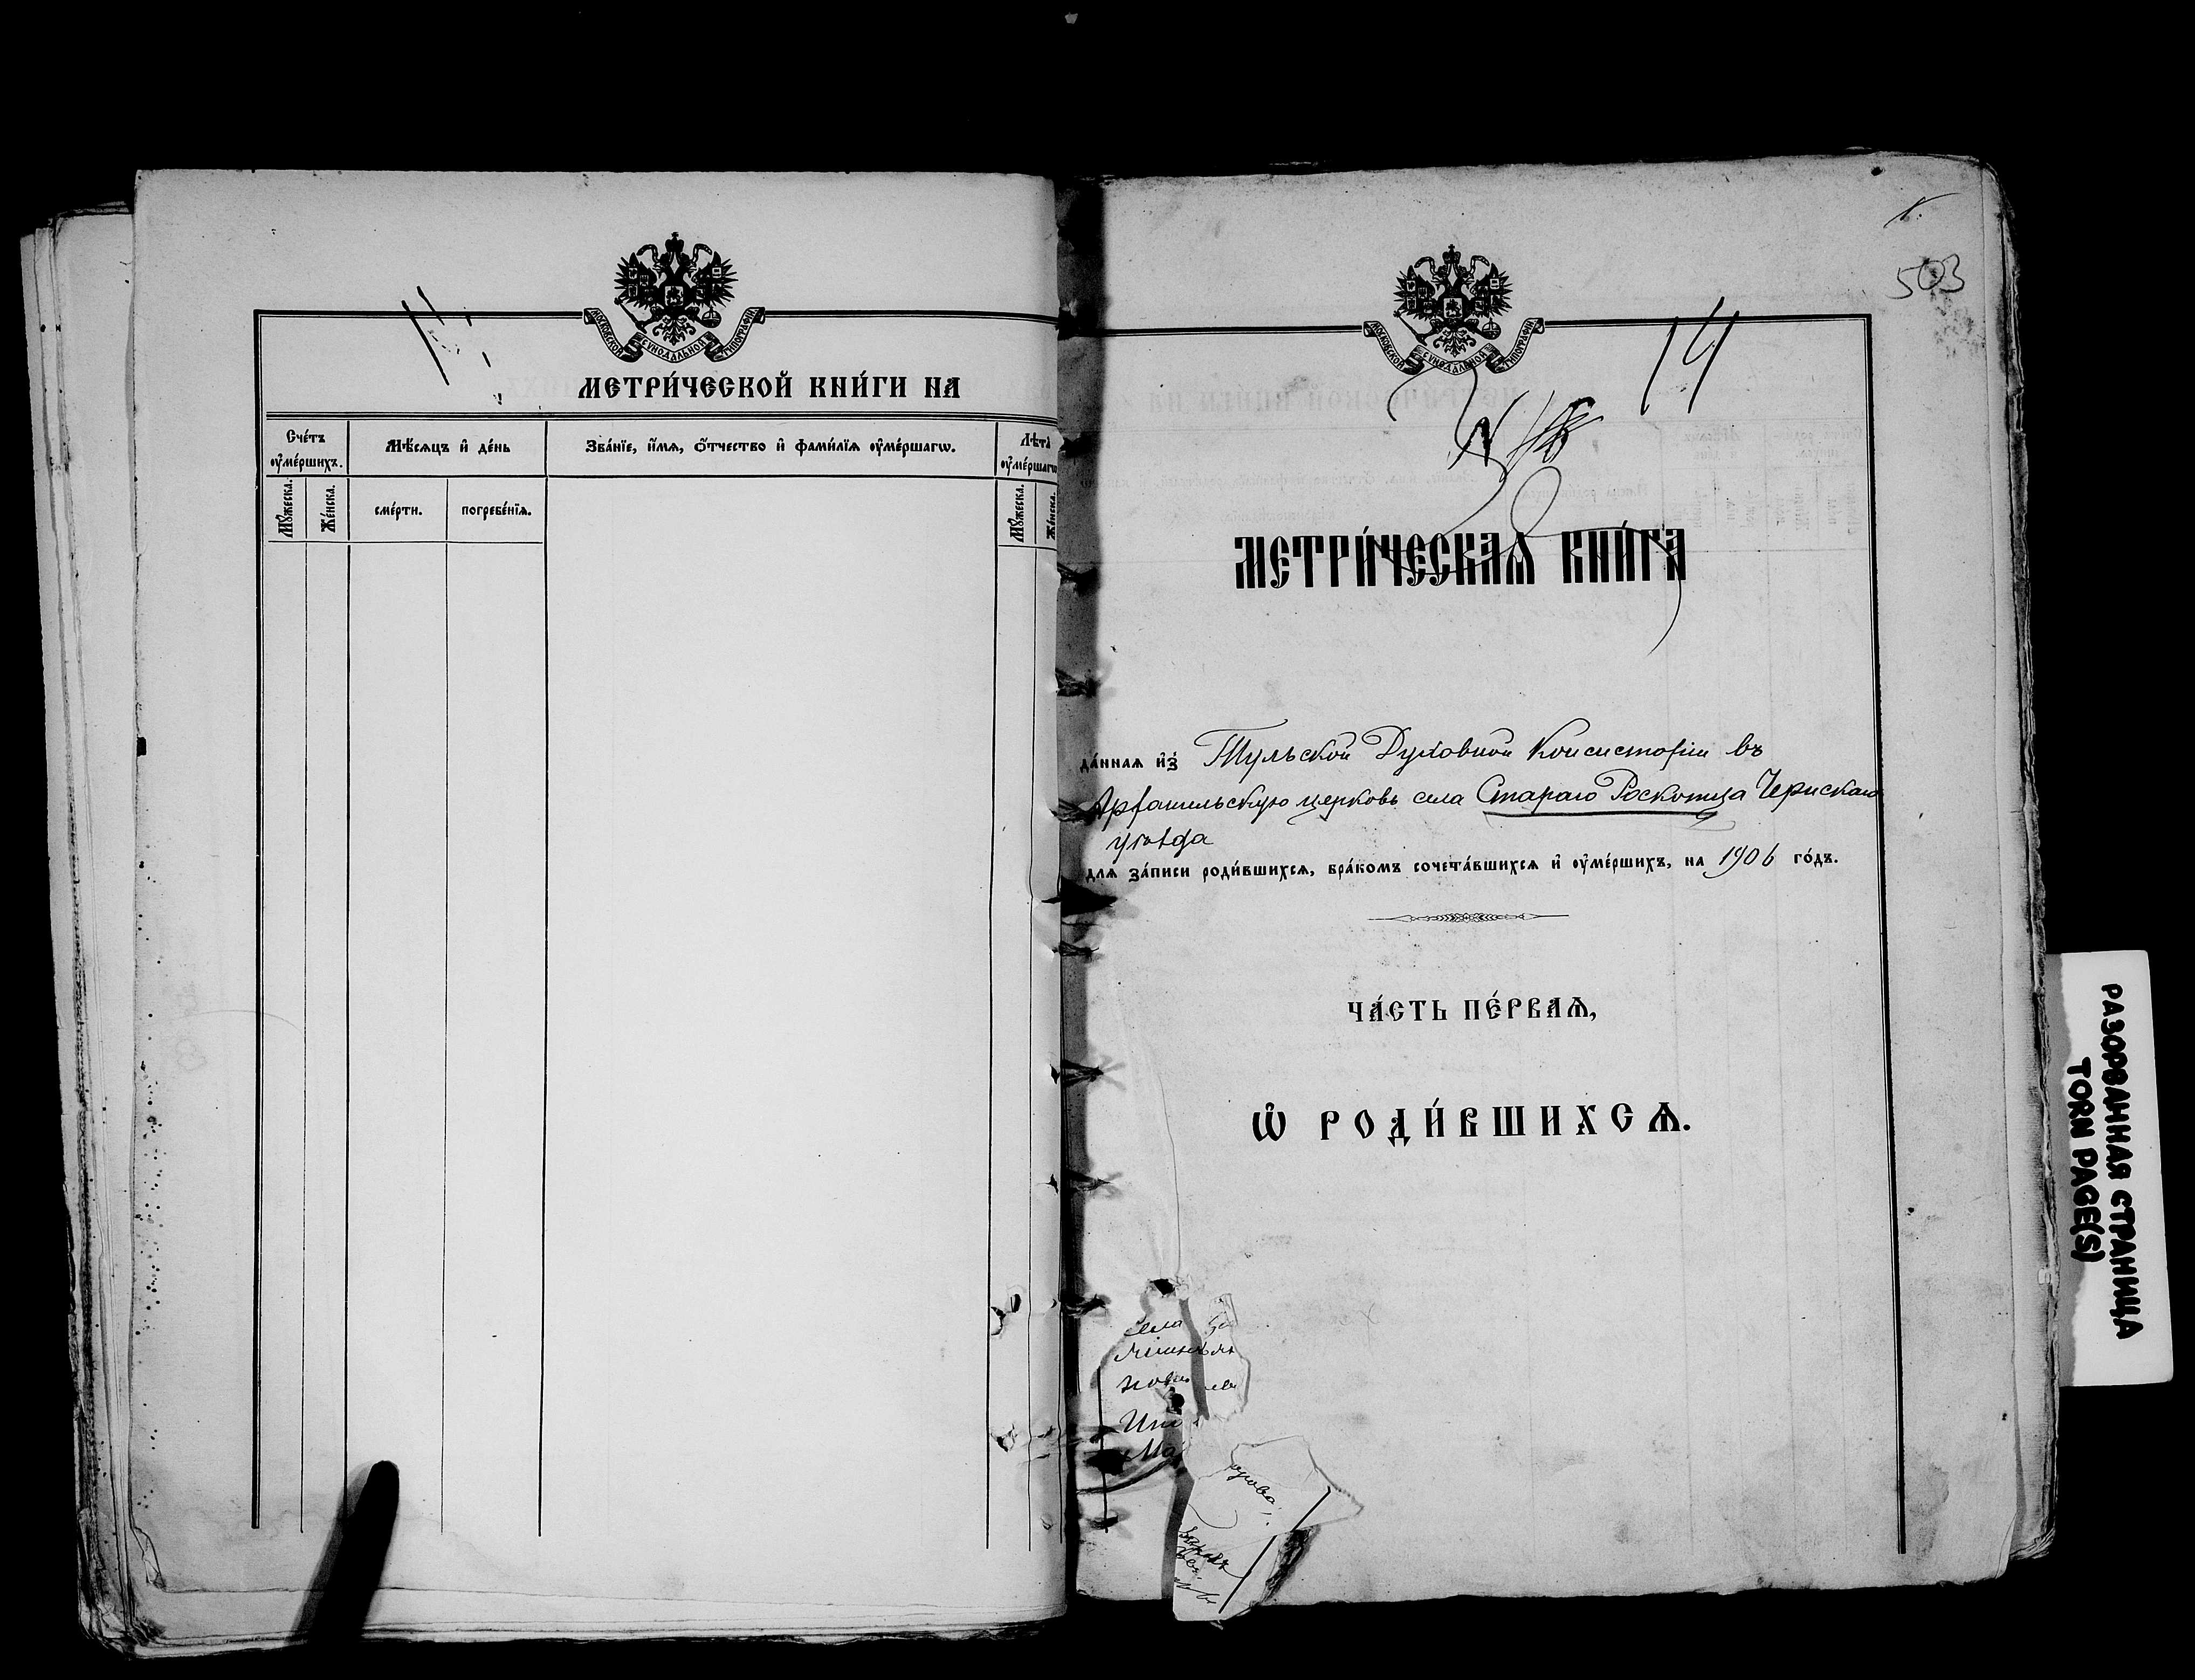 МОСКОВСКОЙ СѴНОДАЛЬНОЙ ТИПОГРАФІИ
МЕТРИ́ЧЕСКОЙ КНИ́ГИ НА
Сче́тъ ᲂу҆ме́ршихъ.
Мѣ́сяцъ и҆ де́нь
Зва́нїе, и҆́мѧ, ѻ҆́тчество и҆ фами́лїѧ ᲂу҆ме́ршагѡ.
Лѣ́та ᲂу҆ме́ршагѡ
Мꙋ́жеска.
Же́нска.
сме́рти.
погребе́нїѧ.
Мꙋ́жеска.
Же́нска.
503
МОСКОВСКОЙ СѴНОДАЛЬНОЙ ТИПОГРАФІИ
14
N
МЕТРИ́ЧЕСКАѦ КНИ́ГА
да́ннаѧ и҆з̾ Тульской Духовной Консисторіи въ
Архангельскую церковь села Стараго Роскотца Чернскаго
уѣзда
для за́писи роди́вшихсѧ, бра́комъ сочета́вшихсѧ и҆ ᲂу҆ме́ршихъ, на 1906 го́дъ.
ЧА́СТЬ ПЕ́РВАѦ,
Ѡ҆ РОДИ́ВШИХСѦ.
села
Ма
РАЗОРВАННАЯ СТРАНИЦА
TORN PAGE(S)